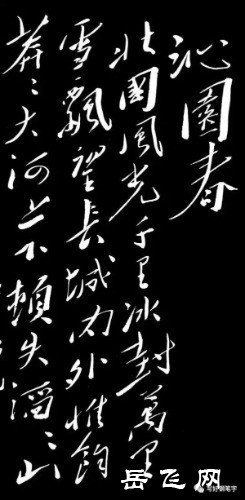 沁園春
北國風光千里冰封萬里
雪飄望長城内外惟餘
莽〻大河上下頓失滔〻山
岳飞网
写好钢笔字